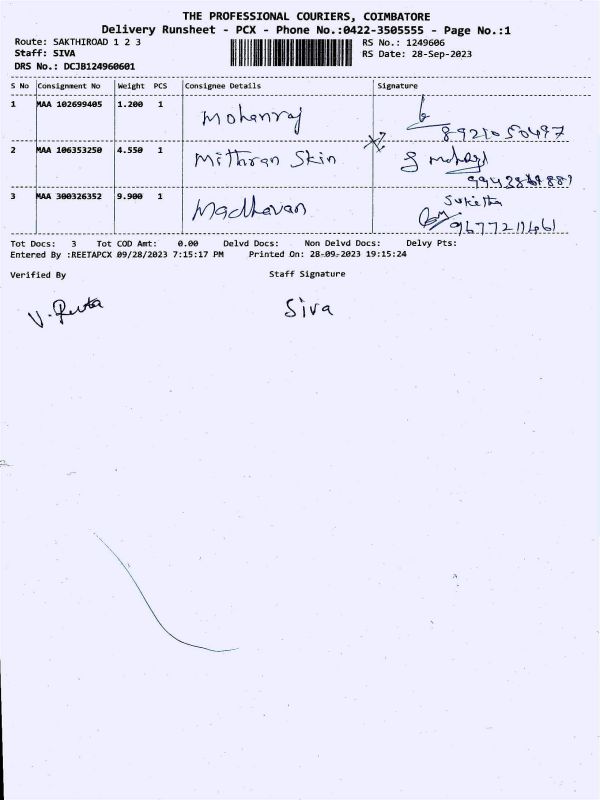 THE PROFESSIONAL COURIERS, COIMBATORE
Delivery Runsheet - PCX - Phone No.:0422-3505555 - Page No.:1
Route: SAKTHIROAD 1 2 3 RS No.: 1249606
Staff: SIVA RS Date: 28-Sep-2023
DRS No.: DCJB124960601
S No Consignment No Weight PCS Consignee Details Signature
1 MAA 102699405 1.200 1 Mohanraj
8921050497
2 MAA 106353250 4.550 1 Mithran Skin
3 MAA 300326352 9.900 1 Madhavan
Tot Docs: 3 Tot COD Amt: 0.00 Delvd Docs: Non Delvd Docs: Delvy Pts:
Entered By :REETAPCX 09/28/2023 7:15:17 PM Printed On: 28-09-2023 19:15:24
Verified By Staff Signature
Siva